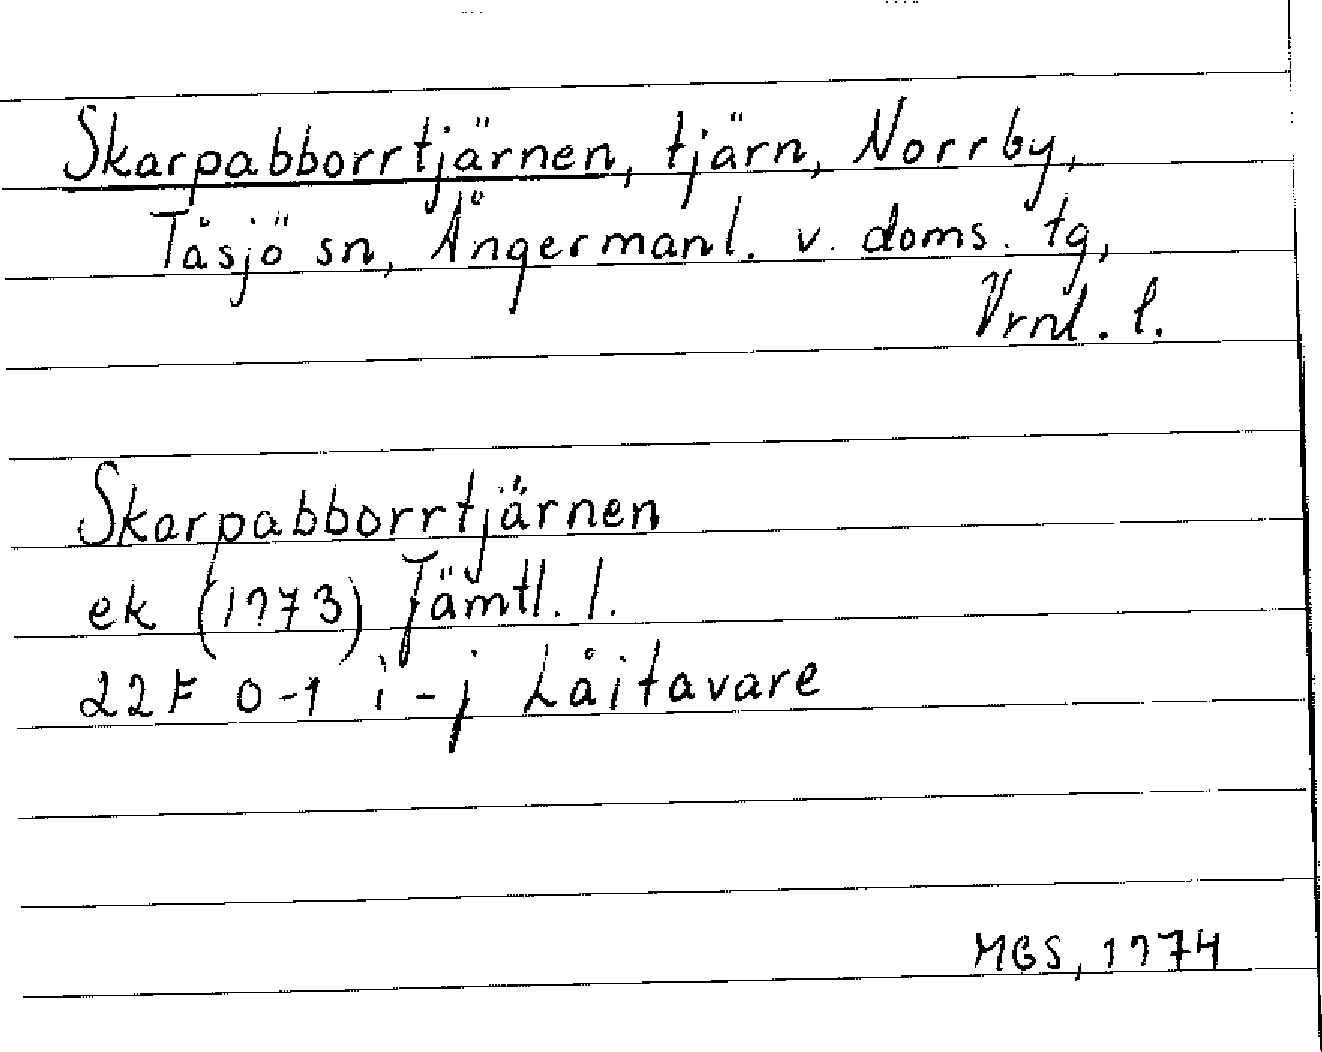 Skarpabborrtjärnen, tjärn, Norrby,
Tåsjö sn, Ångermanl. v. doms. tg,
Vrnl. l.
Skarpabborrtjärnen
ek (1973) Jämtl. l.
22F 0-1 i-j Låjtavare
MGS, 1974